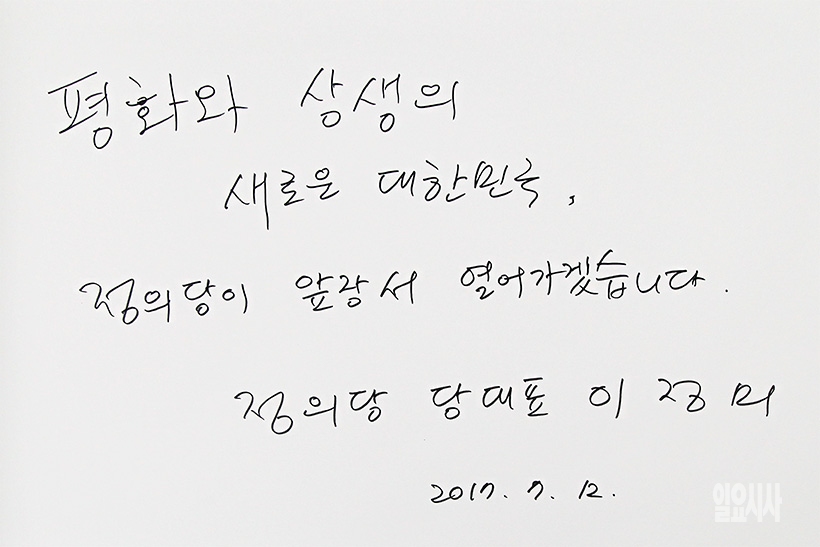 평화와 상생의
새로운 대한민국,
정의당이 앞장서 열어가겠습니다.
정의당 당대표 이정미
2017. 7. 12.
일요시사